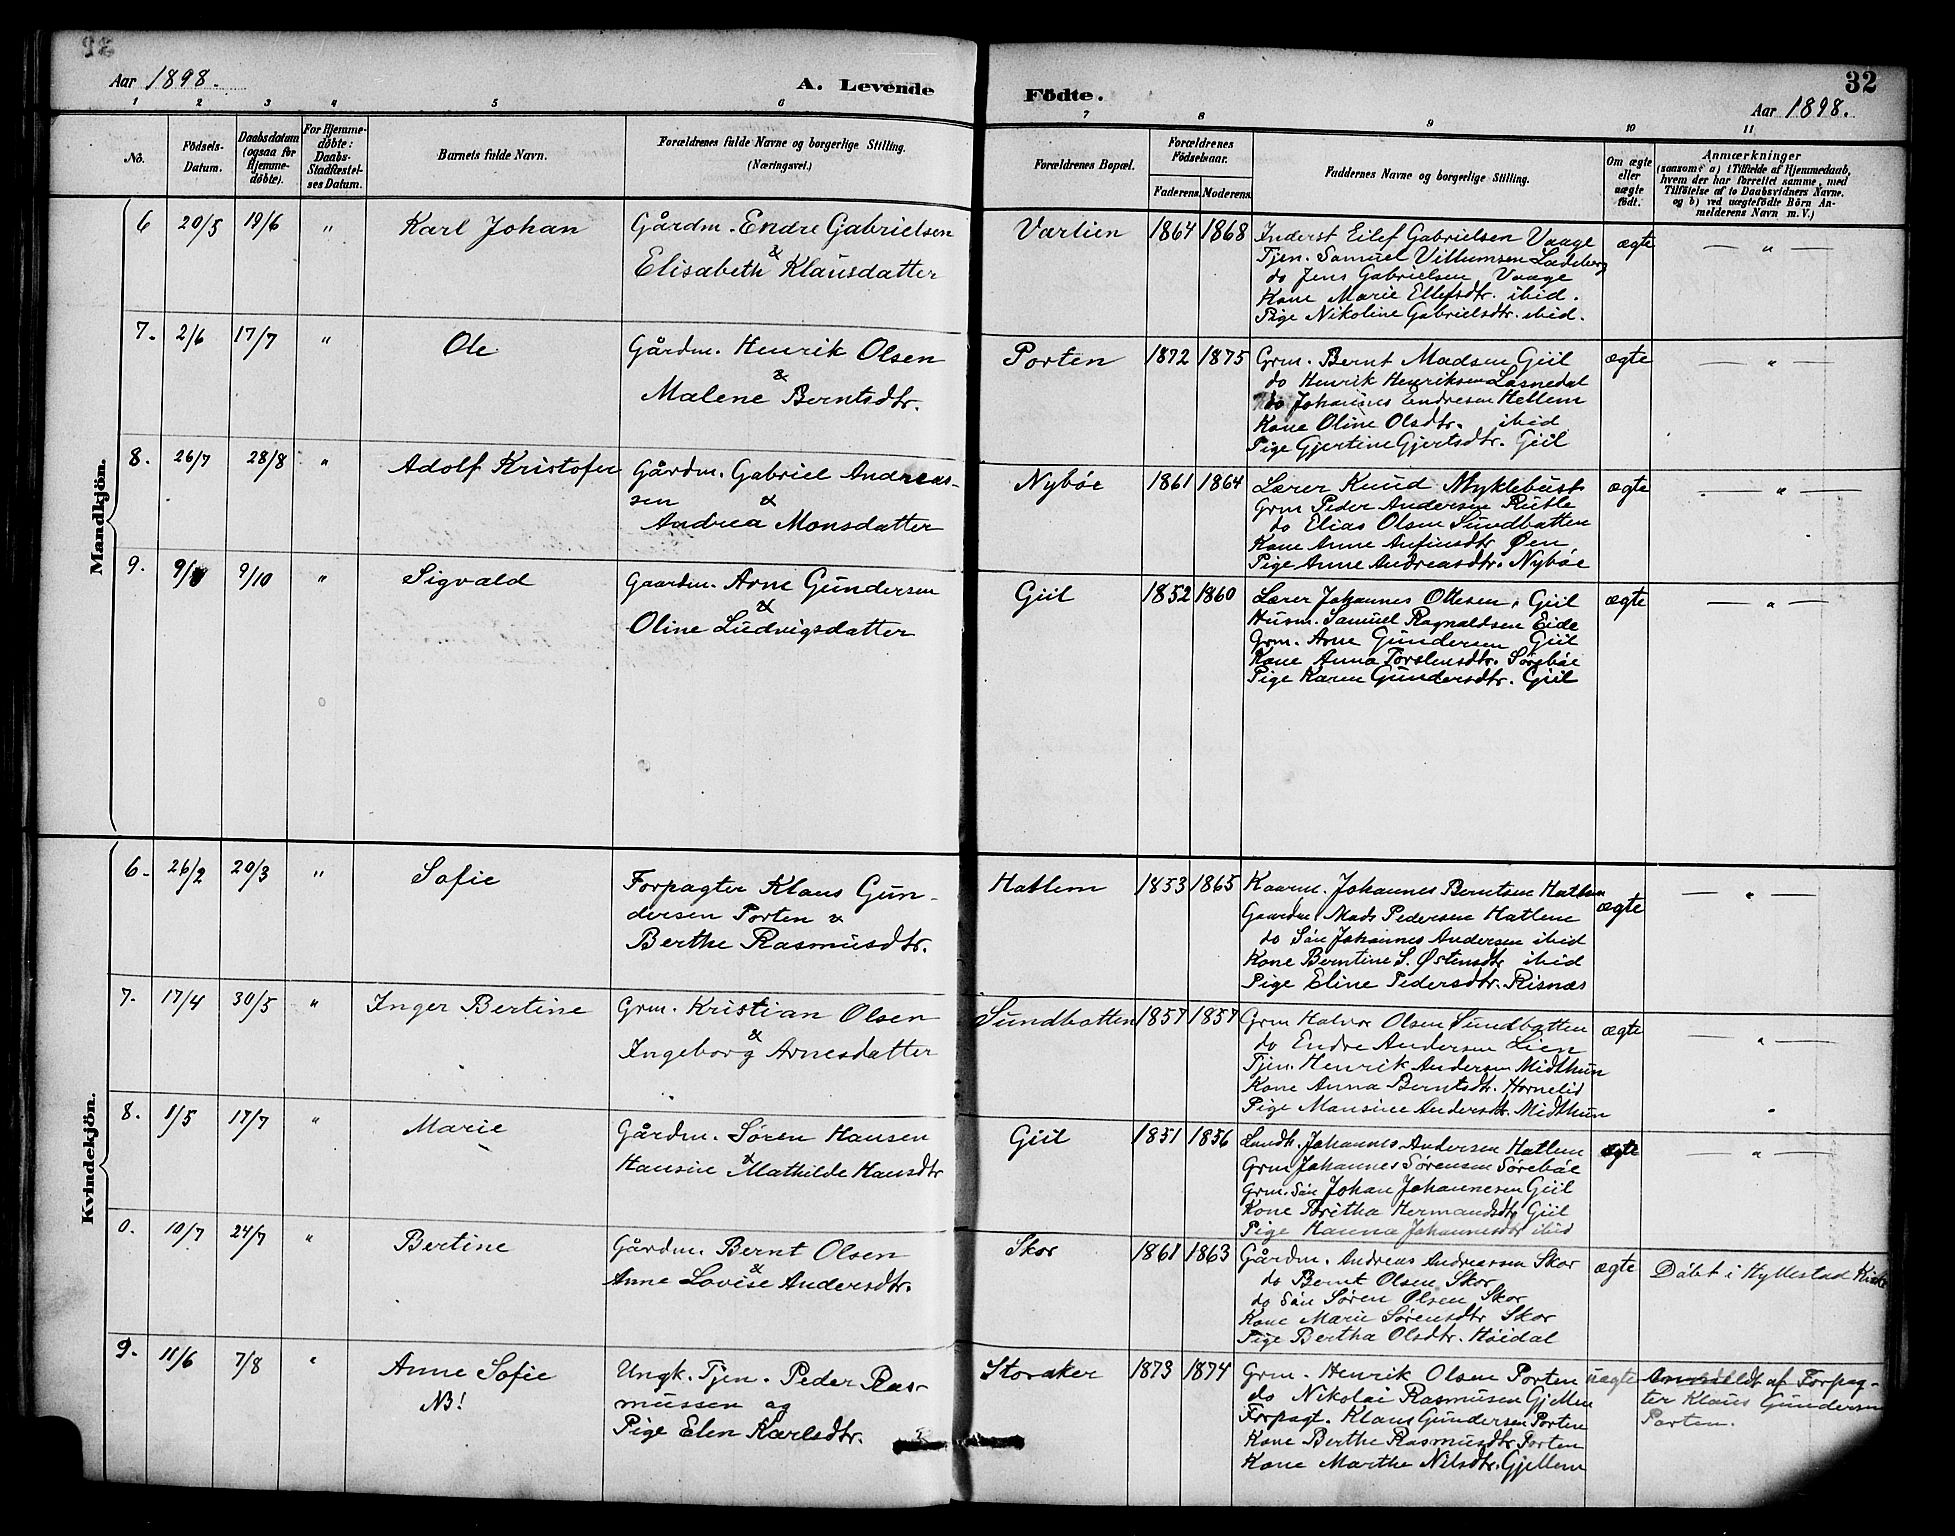 32
Aar 1898. A. Levende Födte. Aar 1898.
1 2 3 4 5 6 7 8 9 10 11
No. Födsels-Datum. Daabsdatum (ogsaa for Hjemme-döbte). For Hjemme-döbte: Daabs-Stadfæstel-ses Datum. Barnets fulde Navn. Forældrenes fulde Navne og borgerlige Stilling. (Næringsvei.) Forældrenes Bopæl. Forældrenes Födselsaar. Faderens. Moderens. Faddernes Navne og borgerlige Stilling. Om ægte eller uægte födt. Anmærkninger (saasom: a) i Tilfælde af Hjemmedaab, hvem der har forrettet samme, med Tilföielse af to Daabsvidners Navne. og b) ved uægtefödte Börn An-melderens Navn m. V.)
Mandkjön.
6 20/5 19/6 " Karl Johan Gårdm. Endre Gabrielsen
&
Elisabeth Klausdatter
Varlien 1864 1868 Inderst Eilef Gabrielsen Vaage ægte — " —
Tjen. Samuel Villumsen Ladeberg
do Jens Gabrielsen Vaage
Kone Marie Ellefsdtr. ibid.
Pige Nikoline Gabrielsdtr. ibid.
7. 2/6 17/7 " Ole Gårdm. Henrik Olsen
&
Malene Berntsdtr.
Porten 1872 1875 Grm. Bernt Madsen Giil ægte — " —
do Henrik Henriksen Løsnedal
do Johannes Endresen Hellem
Kone Oline Olsdtr. ibid
Pige Gjertine Gjertsdtr. Giil
8. 26/7 28/8 " Adolf Kristofer Gårdm. Gabriel Andreas-
sen &
Andrea Monsdatter
Nybøe 1861 1864 Lærer Knud Myklebust ægte — " —
Grm Peder Andersen Rutle
do Elias Olsen Sundbotten
Kone Anne Anfinsdtr Øen
Pige Anne Andreasdtr. Nybøe
9. 9/10 " Sigvald Gaardm. Arne Gundersen
&
Oline Ludvigsdatter
Giil 1852 1860 Lærer Johannes Ottesen, Giil ægte — " —
Husm. Samuel Ragnaldsen Eide
Grm. Arne Gundersen Giil
Kone Anna Torstensdtr. Sørebøe
Pige Karen Gundersdtr. Giil
Kvindekjön.
6. 26/2 20/3 " Sofie Forpagter Klaus Gun-
dersen Porten &
Berthe Rasmusdtr.
Hatlem 1853 1865 Kaarm. Johannes Berntsen Hatlem ægte — " —
Gaardm. Mads Pedersen Hatlem
do Søn Johannes Andersen ibid
Kone Berntine S. Østensdtr ibid
Pige Eline Pedersdtr. Risnæs
7. 17/4 30/5 " Inger Bertine Grm. Kristian Olsen
&
Ingeborg Arnesdatter
Sundbotten 1857 1857 Grm Halvor Olsen Sundbotten ægte — " —
do Endre Andersen Lien
Tjen. Henrik Andersen Midthun
Kone Anna Berntsdtr. Hornelid
Pige Mansine Andersdtr. Midthun
8. 1/5 17/7 " Marie Gårdm. Søren Hansen
Hansine & Mathilde Hansdtr
Giil 1851 1856 Johannes Andersen Hatlem ægte — " —
Grm Johannes Sørensen Sørebøe
Grm. Søn Johan Johannesen Giil
Kone Boritha Hermansdtr Giil
Pige Hanna Johannesdtr ibid
0. 10/7 24/7 " Bertine Gårdm. Bernt Olsen
&
Anne Lovise Andersdtr.
Skor 1861 1863 Gårdm. Andreas Andreassen Skor ægte Döbt i Hyllestad Kirke
do Bernt Olsen Skor
do Søn Søren Olsen Skor
Kone Marie Sørensdtr Skor
Pige Bertha Olsdtr. Höidal
9. 11/6 7/8 " Anne Sofie Ungk. Tjen. Peder Ras-
NB! mussen og
Pige Elen Karlsdtr.
Storaker 1873 1874 Grm. Henrik Olsen Porten uægte Anmeldt af Forpag-
do Nikolai Rasmusen Gjellem ter Klaus Gundersen
Forpagt. Klaus Gundersen Porten Porten.
Kone Berthe Rasmusdtr Porten
Kone Marthe Nilsdtr. Gjellem